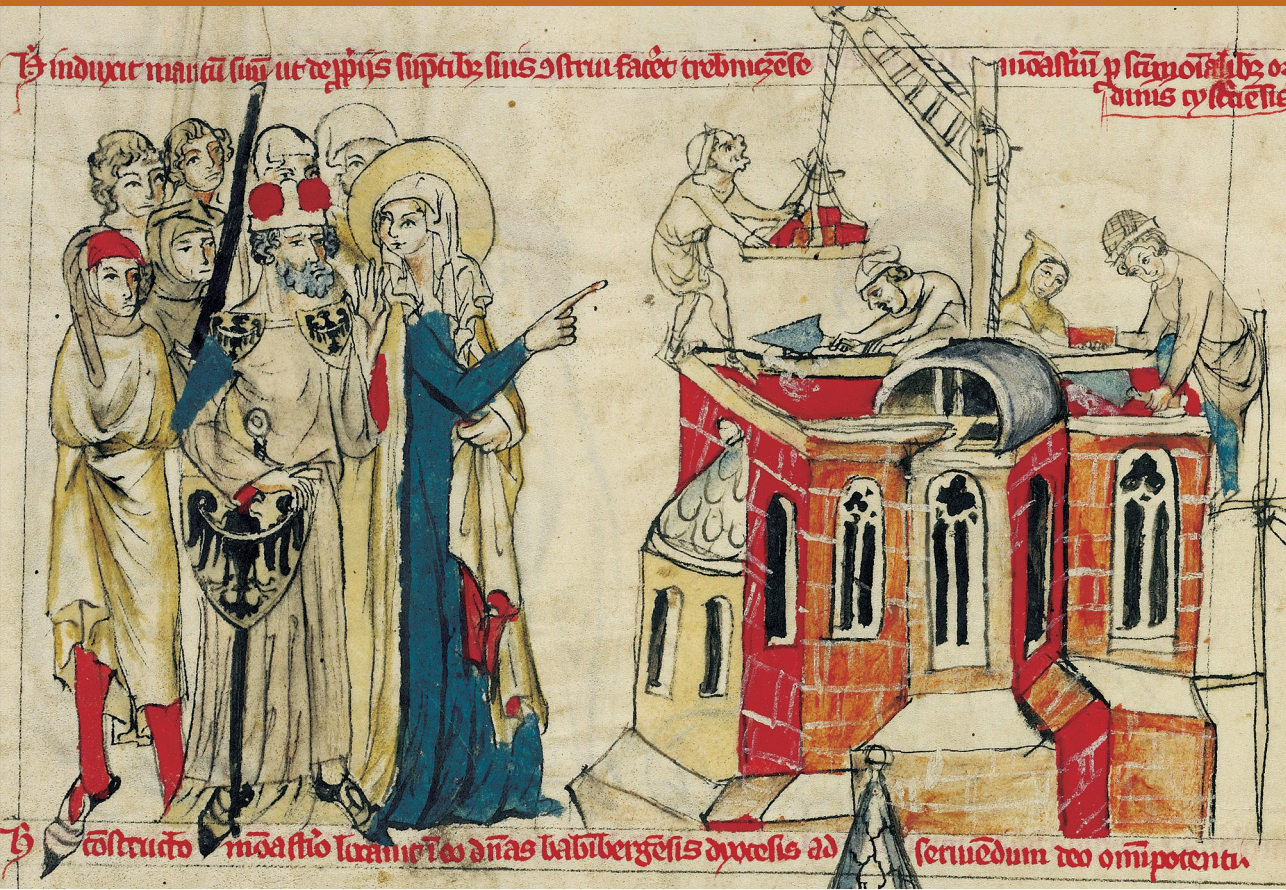 Hic induxit maritū suū ut de ꝓprijs sūptibꝫ suis ꝯstrui facēt trebniczēse
monastiū p scīmonialibꝫ or
dinis cystciēsis
Hic cōstructo monastio locauit ī eo dn̄as babībergēsis dyocesis ad seruiēdum deo omīpotenti.